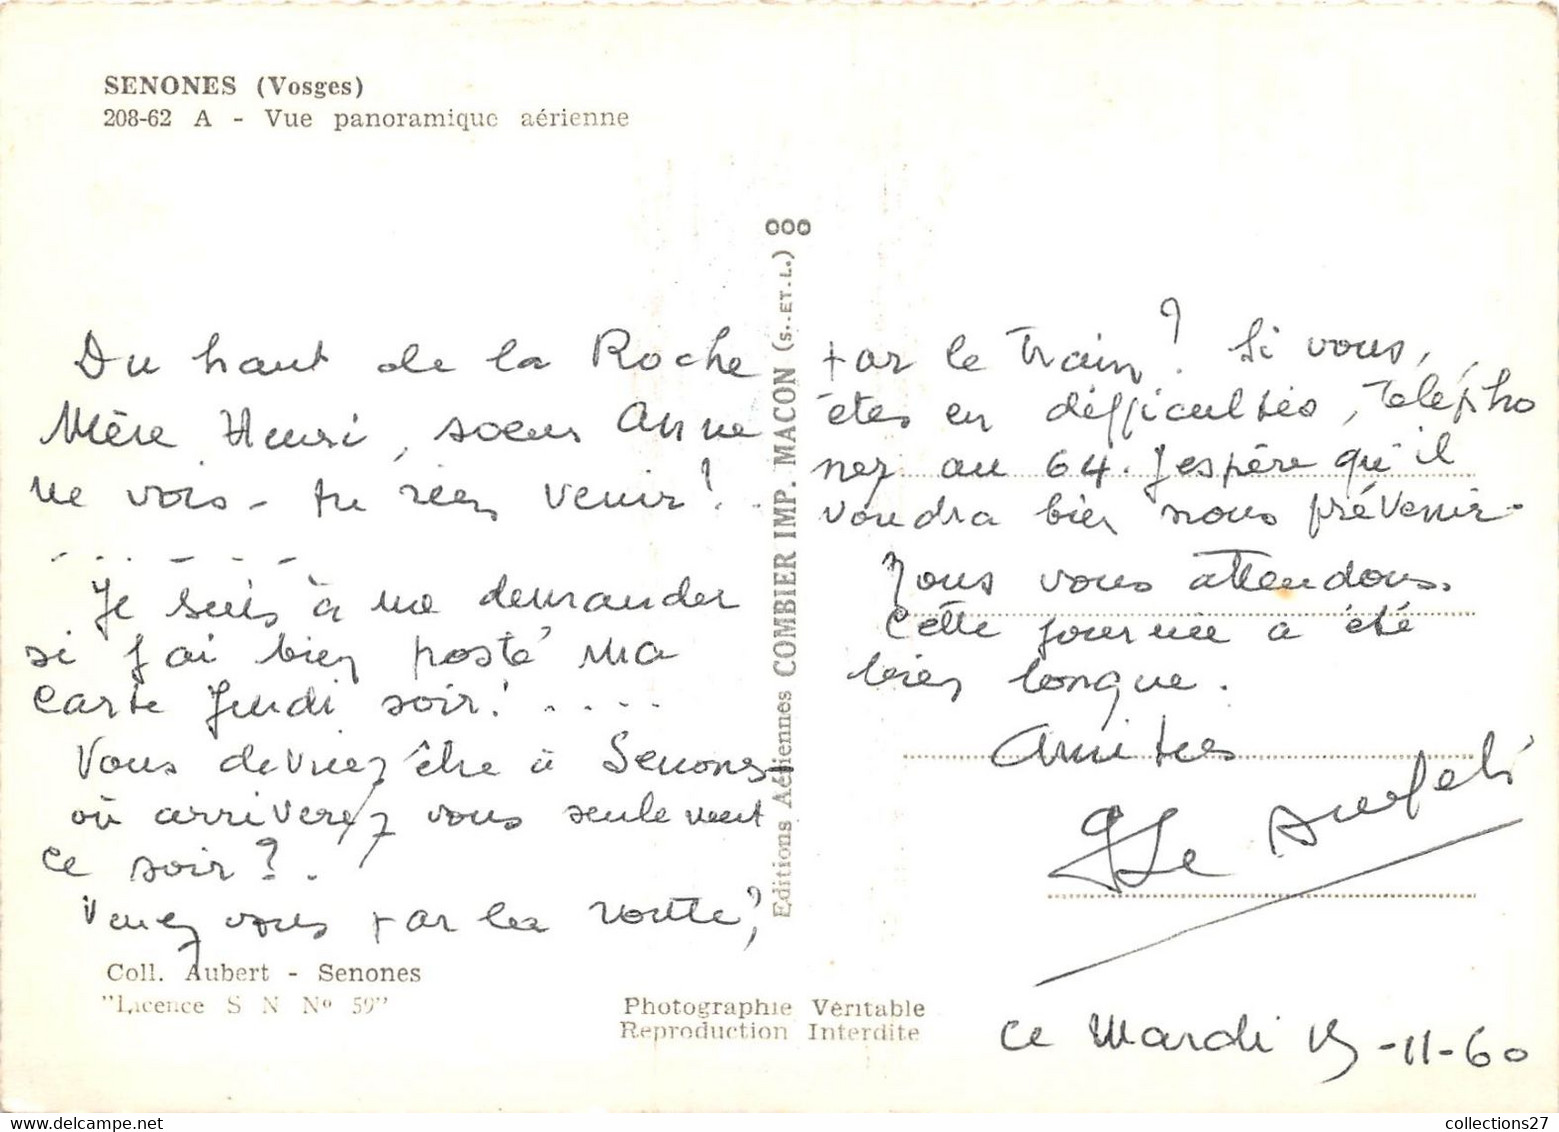 SENONES (Vosges)
208-62 A - Vue panoramique aérienne
Du haut de la Roche
Mère Henri, soeur Anne
ne vois-tu rien venir!..
Je suis à me demander
si j'ai bien posté ma
carte Jeudi soir!....
Vous devriez être à Senones
où arriverez vous seulement
ce soir?.
Venez vous par la route?
Coll. Aubert - Senones
"Licence S N Nº 59"
ooo
Editions Aériennes COMBIER IMP. MACON (S.-ET-L.)
Photographie Véritable
Reproduction Interdite
par le train? Si vous,
êtes en difficultés, télépho
nez au 64. J'espère qu'il
voudra bien nous prévenir.
Nous vous attendons.
Cette journée a été
bien longue.
Amitiés
ce Mardi 15-11-60
collections27